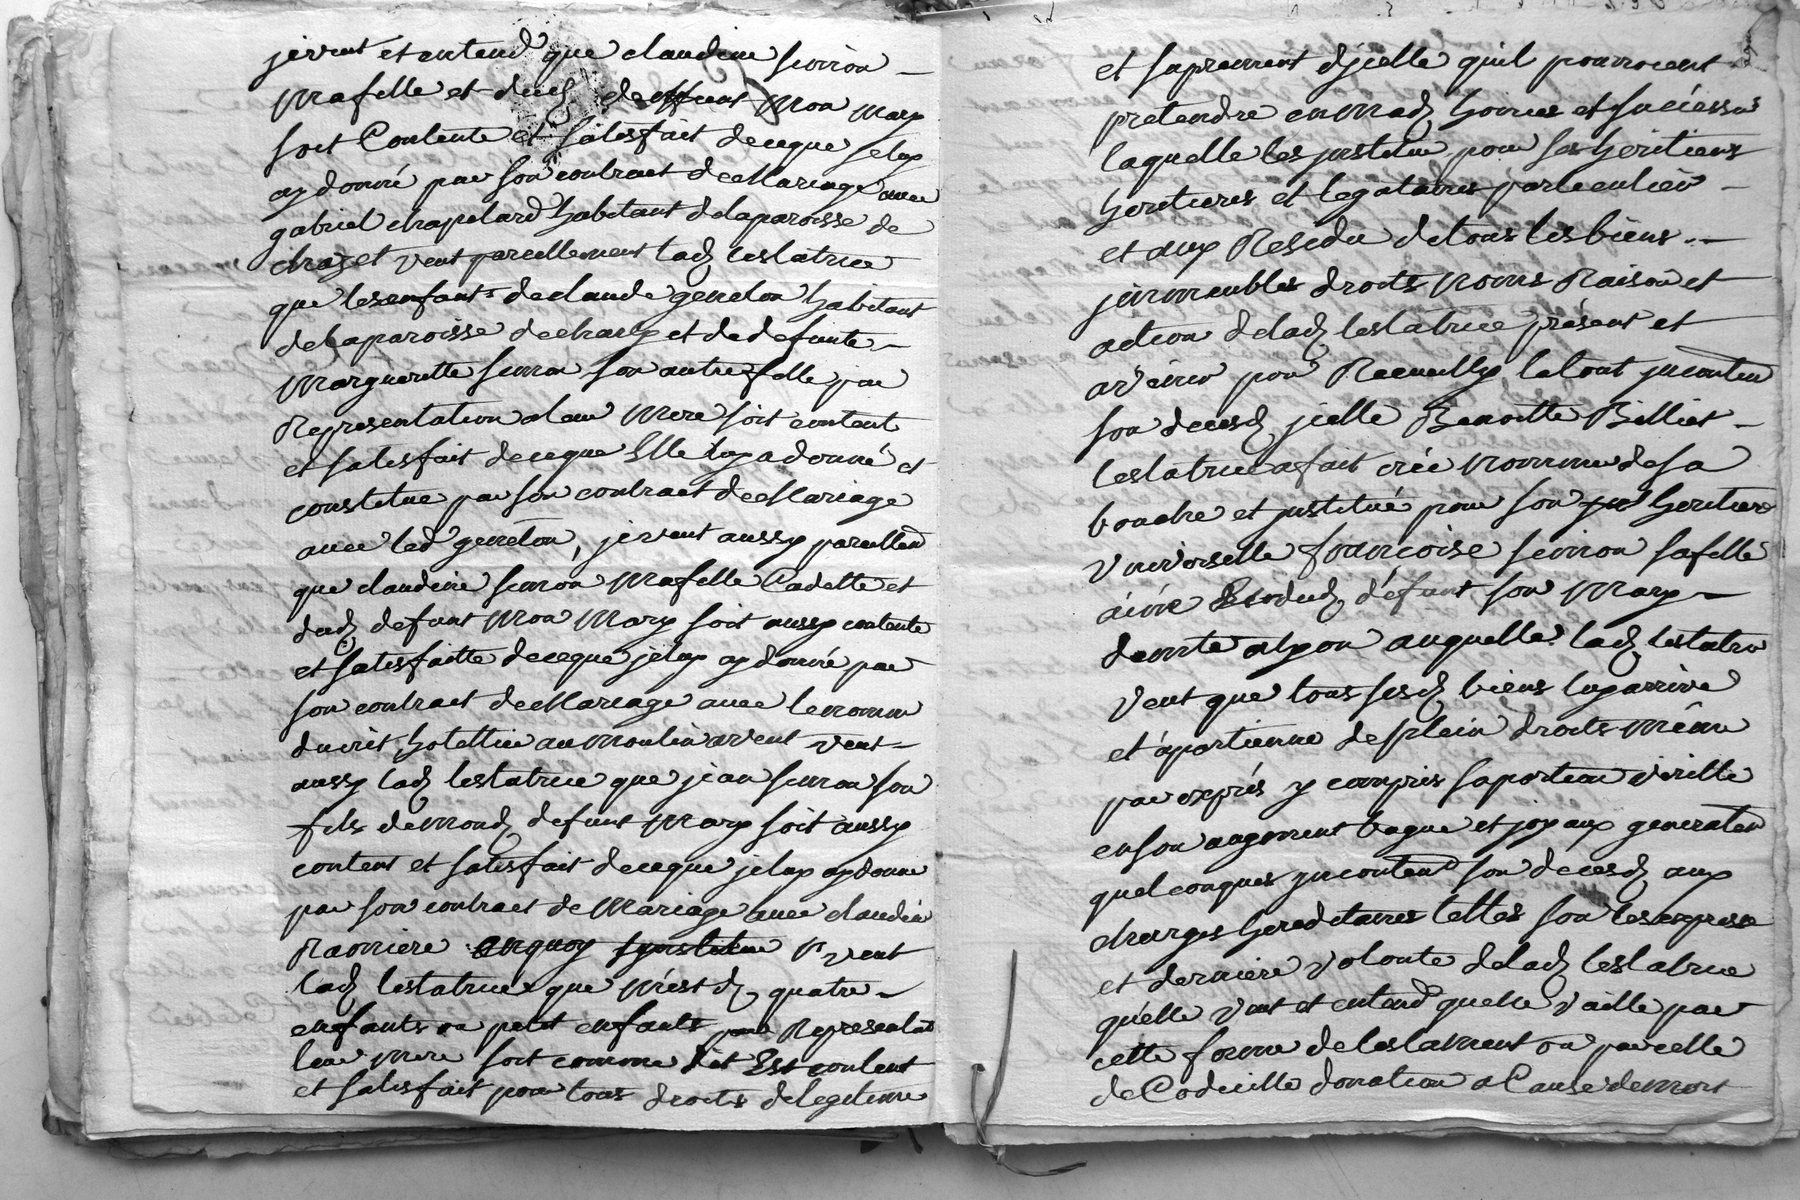 je veut et entend que claudine simon
ma fille et dud. deffunt mon mary
soit Contente et satisfait de ceque je luy
ay donné par son contract de Mariage avec
gabriel chapelard habitant de la paroisse de
et veut pareillement lad. testatrice
que les enfants de claude geneton habitant
de la paroisse de et de defunte
margueritte simon son autre fille par
Representation a leur Mere soit content
et satisfait de ceque Elle luy a donné et
constitue par son contract de Mariage
avec led. geneton, je veut aussy pareillem
que claudine simon Ma fille Cadette et
dud. defunt Mon Mary soit aussy contente
et satisfaitte de ceque je luy ay donné par
son contract de Mariage avec le nommé
ducrèt hotellier au moulin a vent veut
aussy lad. testatrice que jean simon son
fils de mond. defunt Mary soit aussy
content et satisfait de ceque je luy ay donné
par son contract de Mariage avec claudin
veut
lad. testatrice que quatre
enfants ou petit enfants par Represental
leur mere soit comme dit Est content
et satisfait pour tous droits de legitime
et suplement d'jcelle quil pourroient
pretendre en mad. hoirie et succession
laquelle les jnstitue pour ses heritiers
heritieres et legataires particuliers
et aux Residu de tous les biens
jmmeubles droits noms Raison et
action de lad. testatrice présent et
avenir pour Recueilly le tout jncontin
son deces d. jcelle Benoitte Billiet
testatrice a fait crée nommé de sa
bouche et jnstitué pour son heritiere
vniverselle françoise simon sa fille
dud. défunt son Mary
auquelle lad. testatri
veut que tous sesd. biens luy arrive
et apartienne de plein droits même
par exprés y compris sa portion virille
en son augment bague et joyaux generallem
quelconques jncontent son decesd. aux
charges hereditaires telles son les expresse
et derniere volonte de lad. testatrice
quelle veut et entend quelle vaille par
cette forme de testament ou par celle
de Codicille donation a Cause de mort